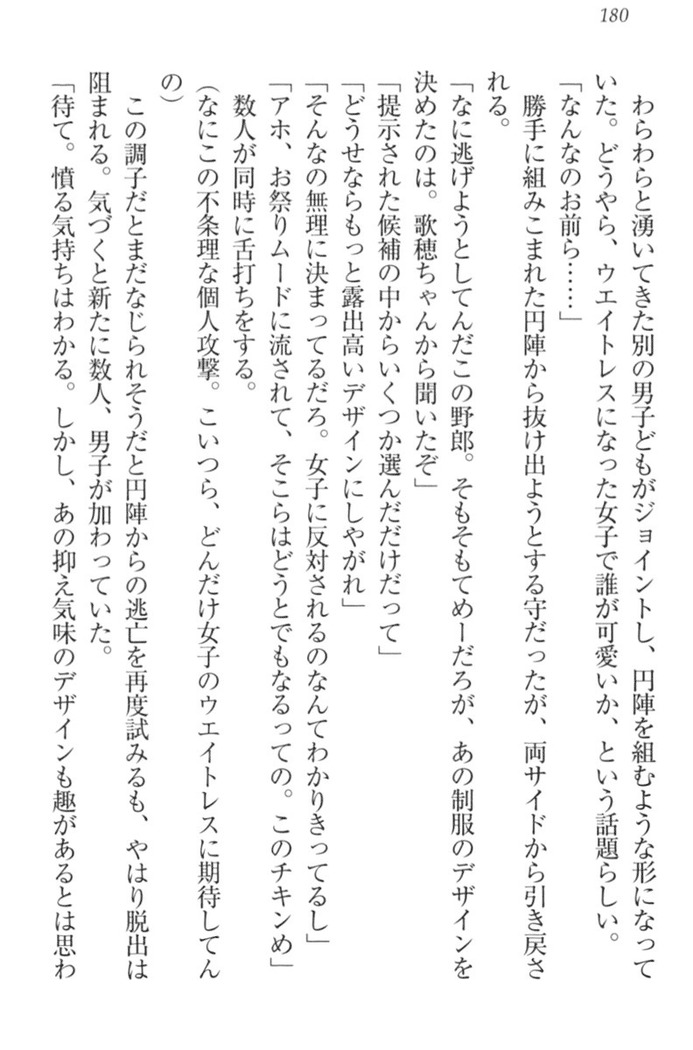 180
わらわらと湧いてきた別の男子どもがジョイントし、円陣を組むような形になって
いた。どうやら、ウエイトレスになった女子で誰が可愛いか、という話題らしい。
「なんなのお前ら……」
勝手に組みこまれた円陣から抜け出ようとする守だったが、両サイドから引き戻さ
れる。
「なに逃げようとしてんだこの野郎。そもそもてめーだろが、あの制服のデザインを
決めたのは。歌穂ちゃんから聞いたぞ」
「提示された候補の中からいくつか選んだだけだって」
「どうせならもっと露出高いデザインにしやがれ」
「そんなの無理に決まってるだろ。女子に反対されるのなんてわかりきってるし」
「アホ、お祭りムードに流されて、そこらはどうとでもなるっての。このチキンめ」
数人が同時に舌打ちをする。
(なにこの不条理な個人攻撃。こいつら、どんだけ女子のウエイトレスに期待してん
の)
この調子だとまだなじられそうだと円陣からの逃亡を再度試みるも、やはり脱出は
阻まれる。気づくと新たに数人、男子が加わっていた。
「待て。憤る気持ちはわかる。しかし、あの抑え気味のデザインも趣があるとは思わ